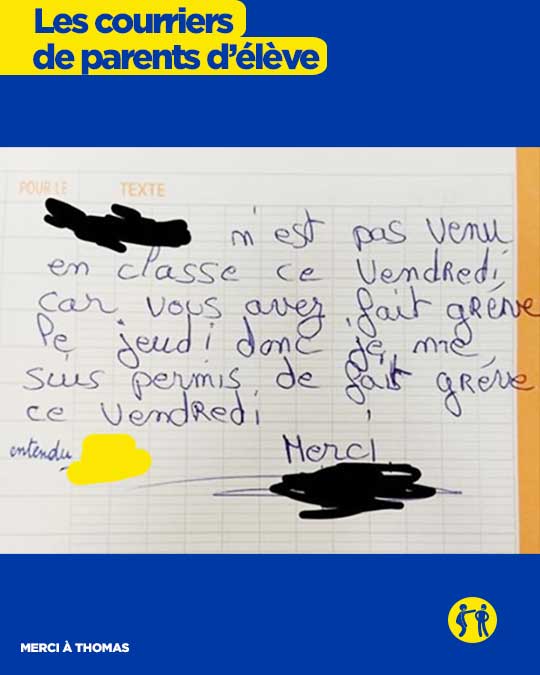 Les courriers
de parents d'élève
POUR LE TEXTE
n'est pas venu
en classe ce vendredi
car vous avez fait grève
le jeudi donc je me
suis permis de fait grève
ce vendredi
entendu Merci
MERCI À THOMAS